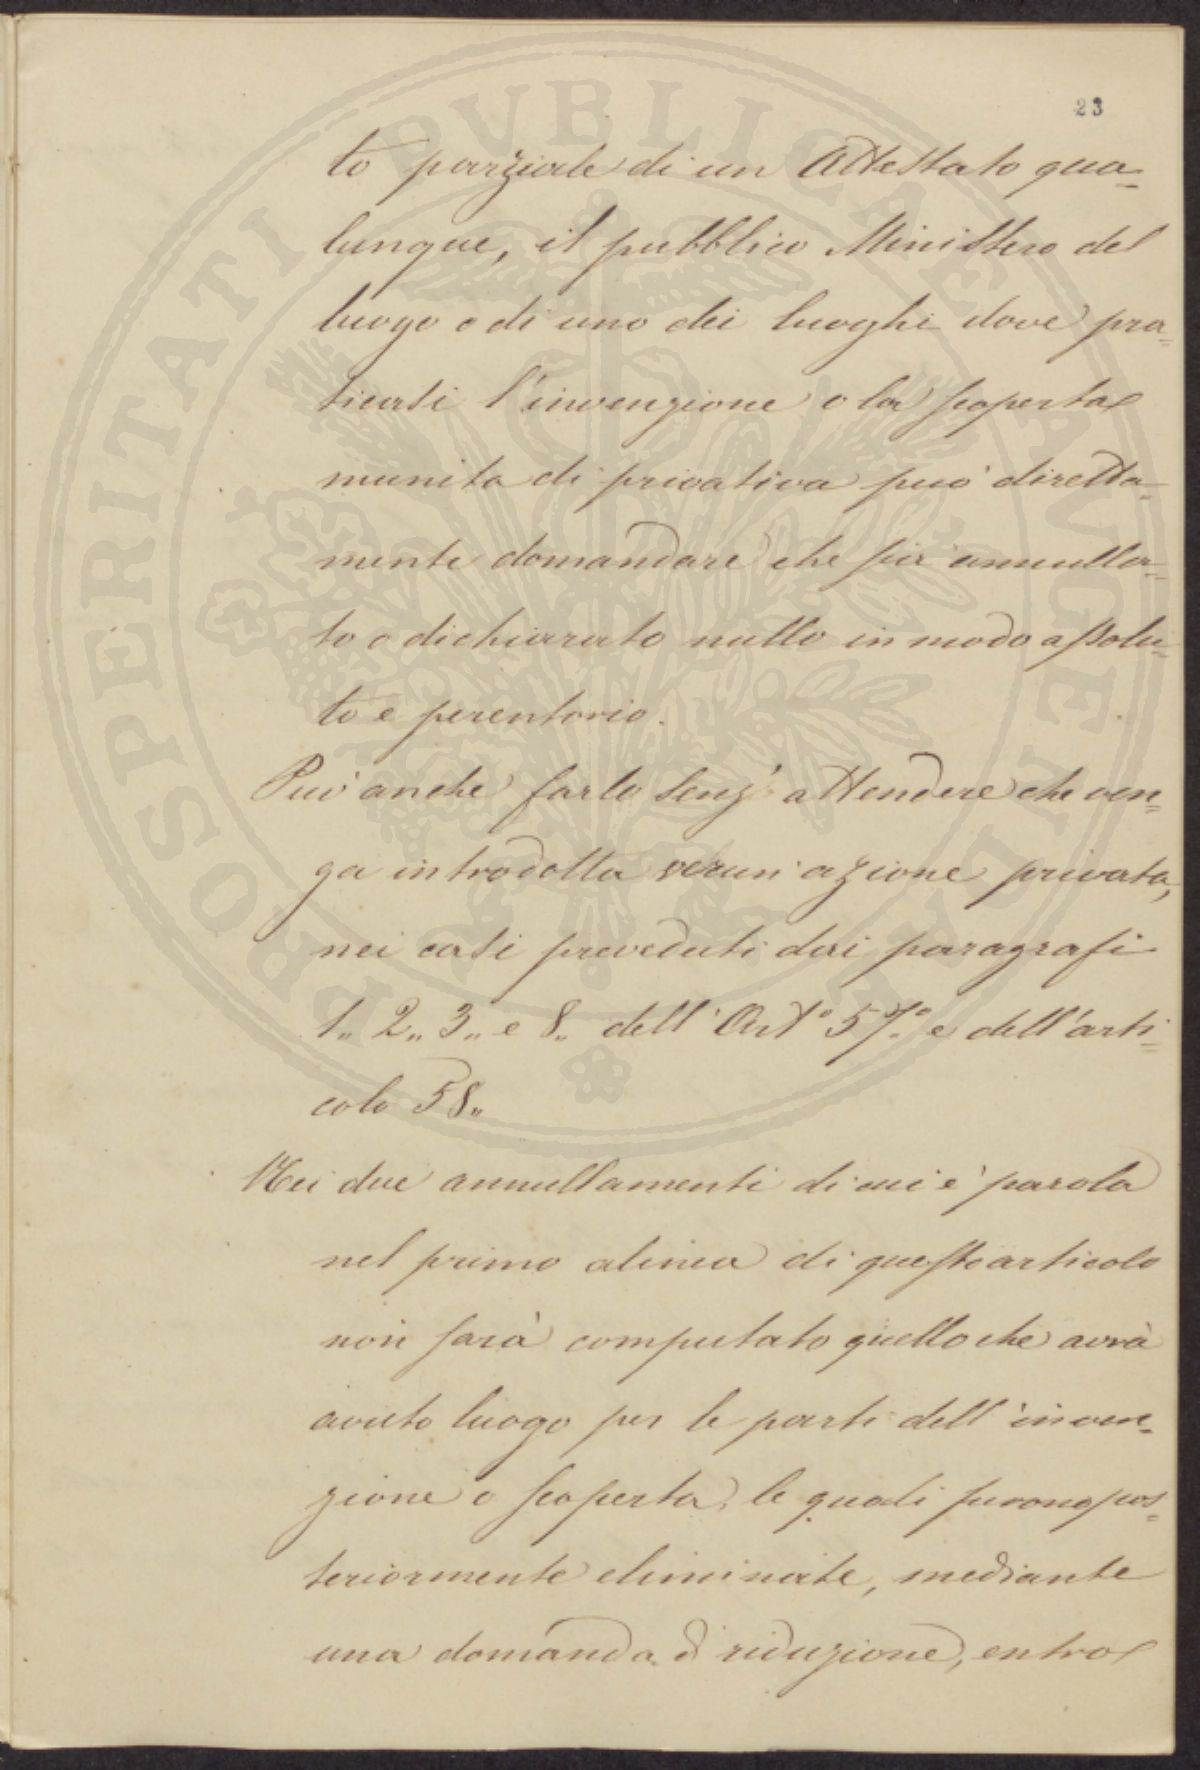 23
to parziale di un Attestato qua=
lunque, il pubblico Ministero del
luogo o di uno dei luoghi dove pra=
ticasi l'invenzione o la scoperta
munita di privativa può diretta=
mente domandare che sia annulla=
to o dichiarato nullo in modo assolu=
to e perentorio.
Può anche farlo senz'attendere che ven=
ga introdotta verun'azione privata,
nei casi preveduti dai paragrafi
1„ 2„ 3„ e 8„ dell'Art.º 57.º e dell'arti=
colo 58„
Nei due annullamenti di cui è parola
nel primo alinea di questo articolo
non sarà computato quello che avrà
avuto luogo per le parti dell'inven=
zione o scoperta, le quali furono pos=
teriormente eliminate, mediante
una domanda di riduzione, entro
PROSPERITATI PVBLICAE AVGENDAE